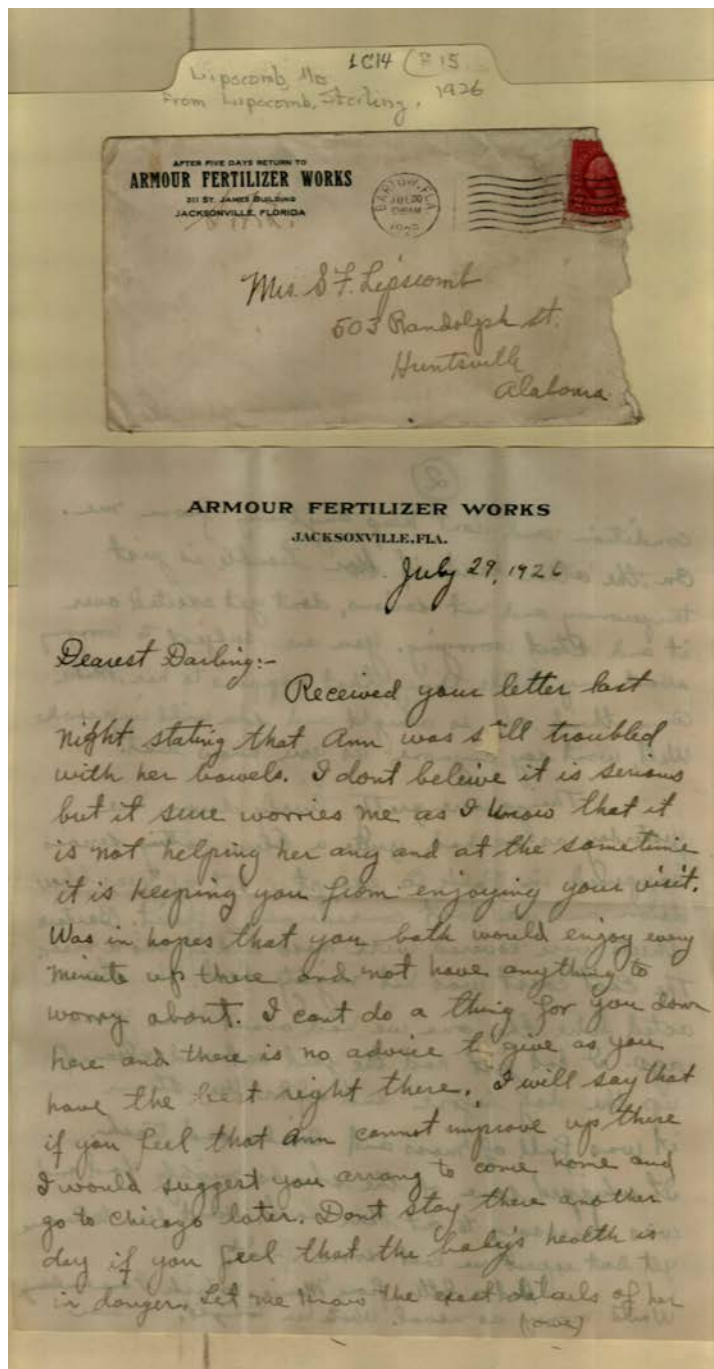 1C14 F15
Lipscomb, Mo
From Lipscomb, Sterling, 1926
AFTER FIVE DAYS RETURN TO
ARMOUR FERTILIZER WORKS
311 ST. JAMES BUILDING
JACKSONVILLE, FLORIDA
BARTOW, FLA.
JUL
Mrs. S F. Lipscomb
503 Randolph st.
Huntsville
Alabama
ARMOUR FERTILIZER WORKS
JACKSONVILLE, FLA.
July 29, 1926
Dearest Darling:-
Received your letter last
night stating that Ann was still troubled
with her bowels. I dont beleive it is serious
but it sure worries me as I know that it
is not helping her any and at the sometime
it is keeping you from enjoying your visit.
Was in hopes that you both would enjoy every
minute up there and not have anything to
worry about. I cant do a thing for you down
here and there is no advice to give as you
have the best right there. I will say that
if you feel that Ann cannot improve up there
I would suggest you arrang to come home and
go to Chicago later. Dont stay there another
day if you feel that the baby's health is
in danger. Let me know the exact details of her
(over)